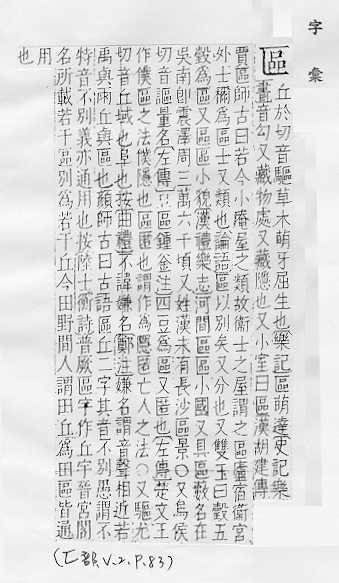 字彙
區丘於切音驅草木萌牙屈生也樂記區萌達史記樂
書音勾又藏物處又藏隱也又小室曰區漢胡建傳
賈區師古曰若今小庵屋之類故衛士之屋謂之區廬宿衛宮
外士稱為區士又類也論語區以別矣又分也又雙玉曰瑴五
瑴為區又區區小貌漢禮樂志河間區區小國又具區藪名在
吳南卽震澤周三萬六千頃又姓漢末有長沙區景○又烏侯
切音謳量名左傳豆區鍾金注四豆為區又匿也左傳楚文王
作僕區之法僕隱也區匿也謂作為隱匿亡人之法○又驅尤
切音丘域也阜也按曲禮不諱嫌名鄭注嫌名謂音聲相近若
禹與雨丘與區也顏師古曰古語區丘二字其音不別愚謂不
特音不別義亦通用也按陸士衡詩普厥區宇作丘宇晉宮閣
名所載若干區別為若干丘今田野間人謂田丘為田區皆通
用
也
(匸部V.2.P.83)